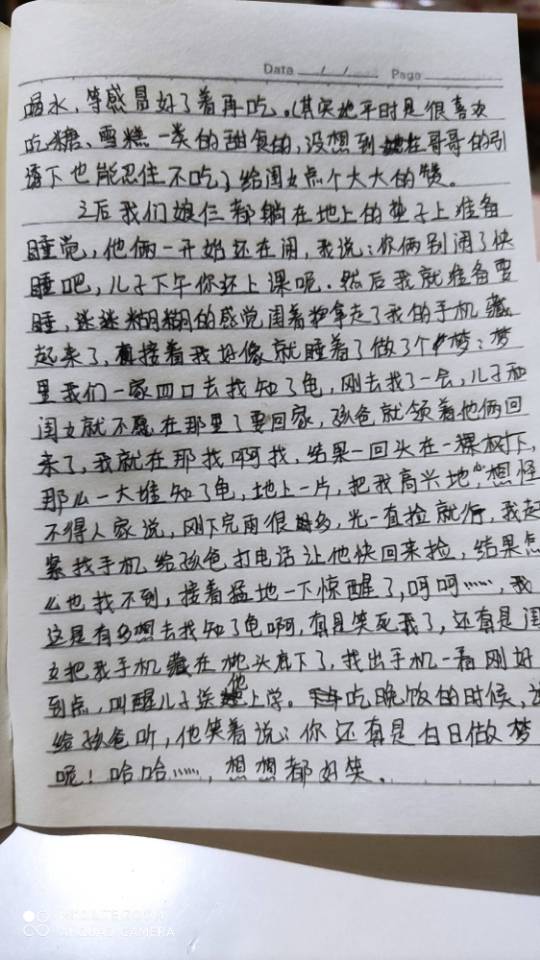 Date / / Page
喝水,等感冒好了着再吃。(其实她平时是很喜欢
吃糖、雪糕一类的甜食的,没想到在哥哥的引
诱下也能忍住不吃)给闺女点个大大的赞。
之后我们娘仨都躺在地上的垫子上准备
睡觉,他俩一开始还在闹,我说:你俩别闹了快
睡吧,儿子下午你还上课呢.然后我就准备要
睡,迷迷糊糊的感觉闺着拿走了我的手机藏
起来了,接着我好像就睡着了做了个梦:梦
里我们一家四口去找知了龟,刚去找了一会,儿子和
闺女就不愿在那里了要回家,孩爸就领着他俩回
来了,我就在那找啊找,结果一回头在一棵树下,
那么一大堆知了龟,地上一片,把我高兴地“想怪
不得人家说,刚下完雨很多,光一直捡就行,我赶
紧找手机给孩爸打电话让他快回来捡,结果怎
么也找不到,接着猛地一下惊醒了,呵呵……,我
这是有多想去找知了龟啊,真是笑死我了,还真是闺
女把我手机藏在枕头底下了,找出手机一看刚好
到点,叫醒儿子送他上学。吃晚饭的时候,
给孩爸听,他笑着说:你还真是白日做梦
呢!哈哈……,想想都好笑。
AI QUAD CAMERA